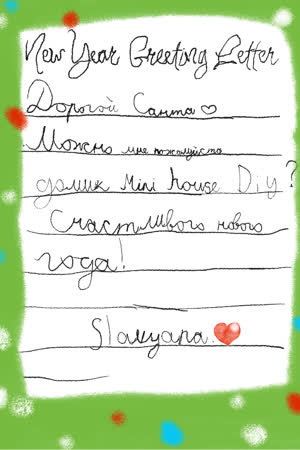 New Year Greeting Letter
Дорогой Санта♡
Можно мне пожалуйста
домик Mini house Diy?
Счастливого нового
года!
Slavyana.❤